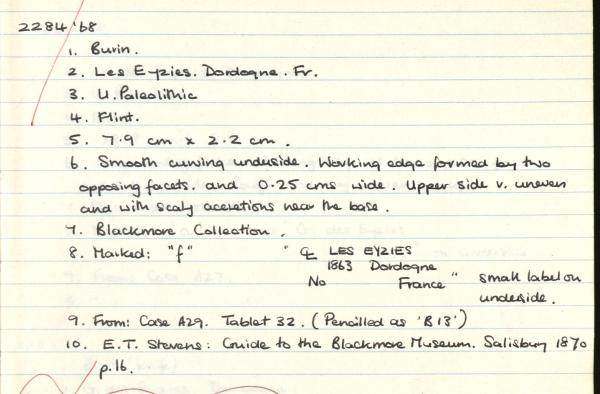 2284 '68
1. Burin.
2. Les Eyzies. Dordogne. Fr.
3. U. Paleolithic
4. Flint.
5. 7.9 cm x 2.2 cm.
6. Smooth curving underside. Working edge formed by two
opposing facets. and 0.25 cms wide. Upper side v. uneven
and with scaly accretions near the base.
7. Blackmore Collection.
8. Marked: "f" " LES EYZIES
1863 Dordogne
No France " small label on
underside.
9. From: Case A29. Tablet 32. (Pencilled as 'B13')
10. E.T. Stevens: Guide to the Blackmore Museum. Salisbury 1870
p.16.